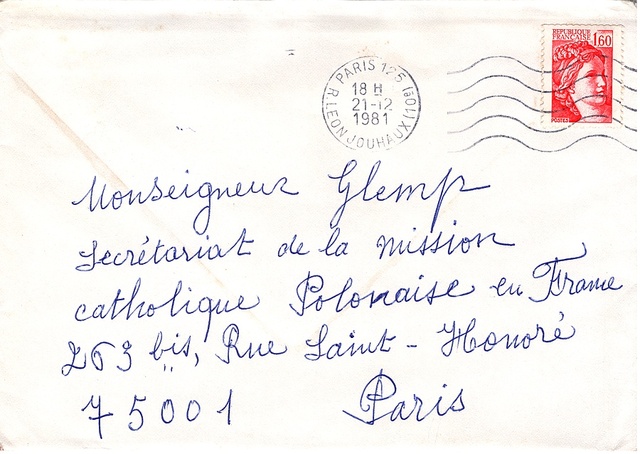 REPUBLIQUE
FRANÇAISE
1,60
POSTES
PARIS 125 (101)
18 H
21-12
1981
R. LEON JOUHAUX
Monseigneur Glemp
Secrétariat de la mission
catholique Polonaise en France
263 bis, Rue Saint-Honoré
75001 Paris